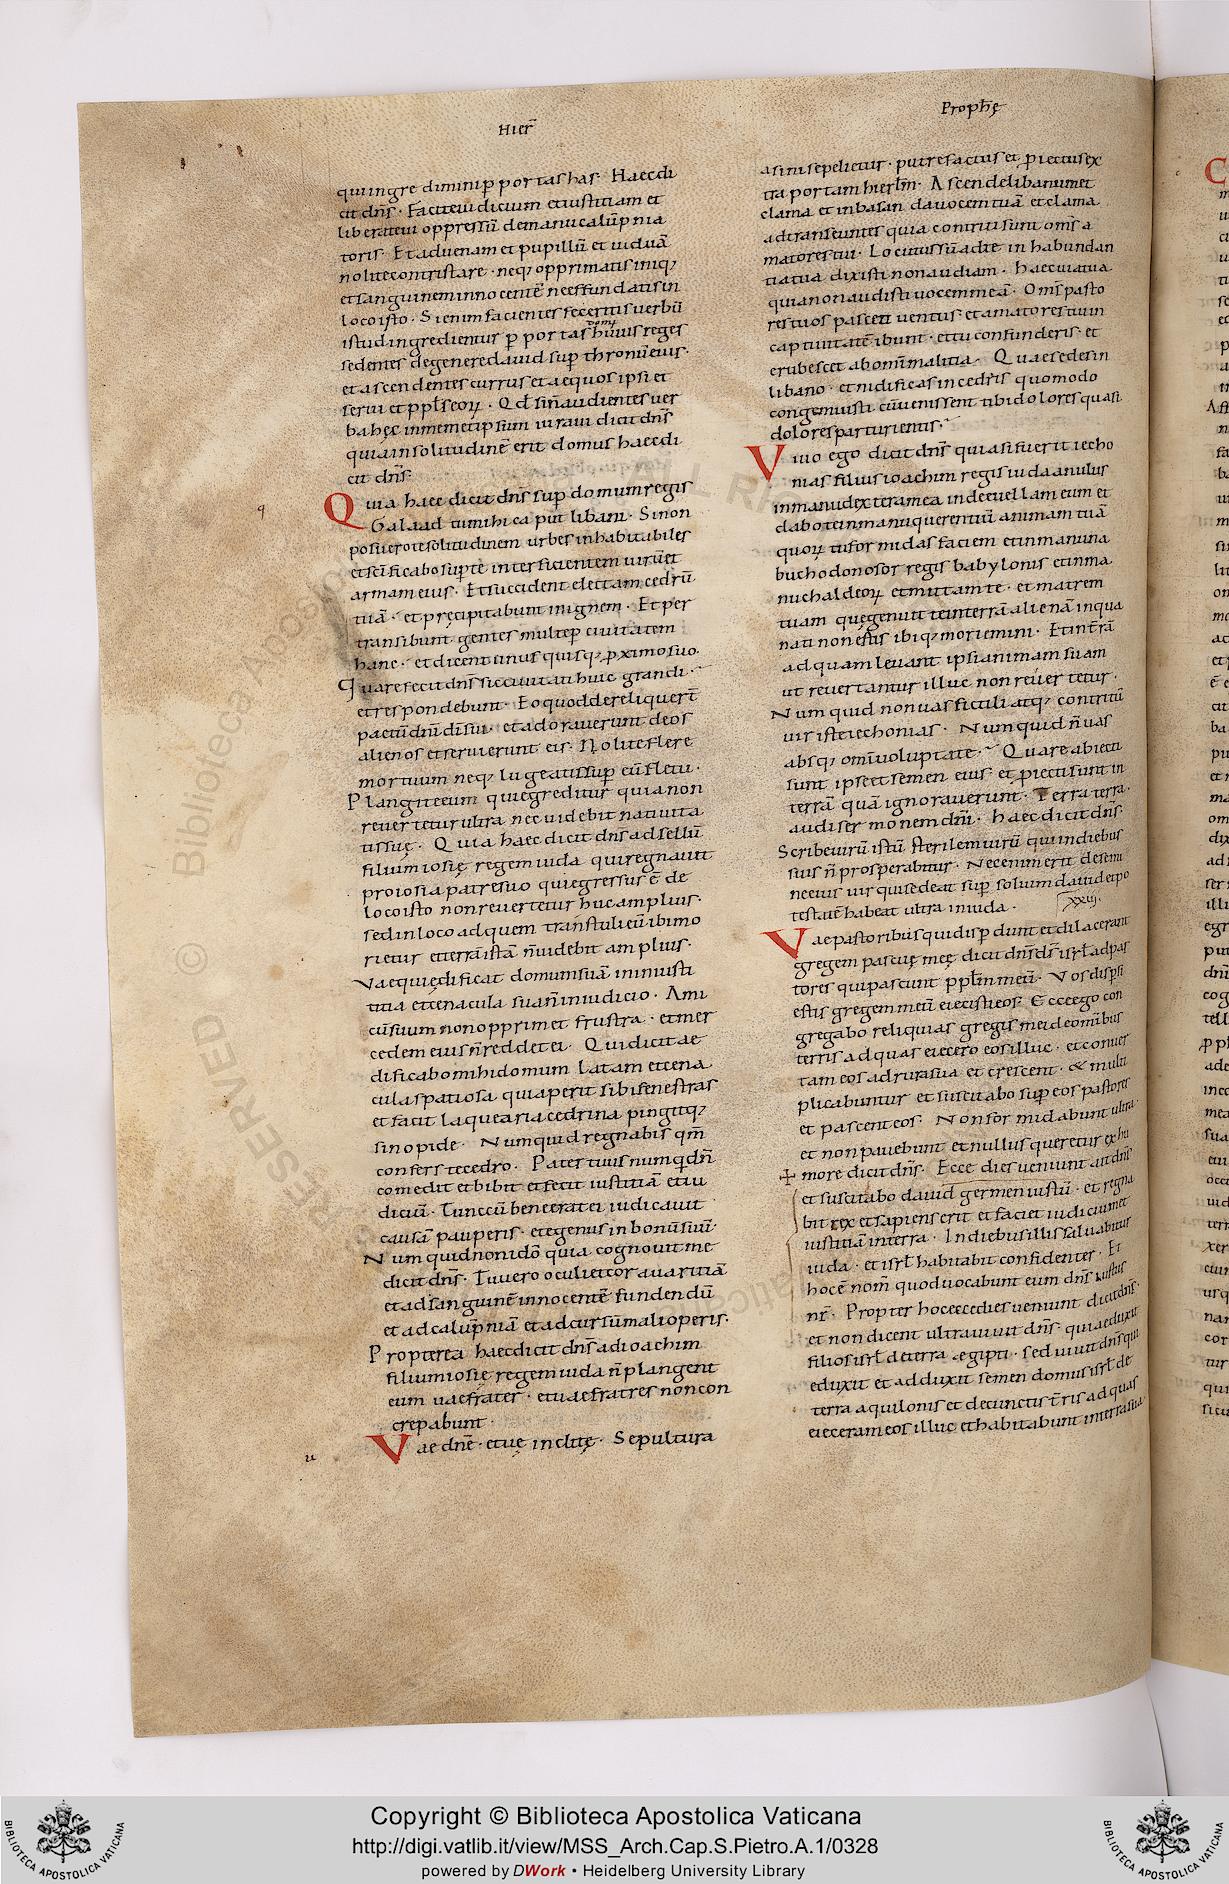 Hier̄
Proph̄ę
qui ingredimini p̱ portas has · Haec di
cit dn̄s · Facite iudicium et iustitiam et
liberate ui oppressū de manu calūpnia
toris · Et aduenam et pupillū et uiduā
nolite contristare · neq; opprimatis iniq;
et sanguinem innocentē ne effundatis in
loco isto · Si enim facientes feceritis uerbū
istud ingredientur p̱ portas domꝰ huius reges
sedentes de genere dauid sup̱ thronū eius ·
et ascendentes currus et aequos ipsi et
serui et ppl̄s eoꝝ · Qd̄ si n̄ audientes uer
ba hęc in memetipsum iuraui dicit dn̄s
quia in solitudinē erit domus haec di
cit dn̄s
q
Quia haec dicit dn̄s sup̱ domum regis
Galaad tu mihi caput libani · Si non
posuero te solitudinem urbes inhabitabiles
et sc̄ificabo sup̱ te interficientem uirū et
arma eius · Et succident electam cedrū
tuā · et pręcipitabunt in ignem · Et per
transibunt gentes multe p̱ ciuitatem
hanc · et dicent unus quisq; ꝓximo suo
Quare fecit dn̄s sic ciuitati huic grandi ·
et respondebunt · Eo quod dereliquer̄t
pactū dn̄i dī sui · et adorauerunt deos
alienos et seruierunt eis · Nolite flere
mortuum neq; lugeatis sup̱ eū fletu ·
Plangite eum qui egreditur quia non
reuertetur ultra nec uidebit natiuita
tis suę · Quia haec dicit dn̄s ad sellū
filium iosię regem iuda qui regnauit
pro iosia patre suo qui egressus ē de
loco isto non reuertetur huc amplius ·
sed in loco ad quem transtuli eū ibi mo
rietur et terrā istā n̄ uidebit amplius ·
Vae qui ędificat domum suā in iniusti
titia et cenacula sua n̄ in iudicio · Ami
cū suum non opprimet frustra · et mer
cedem eius n̄ reddet ei · Qui dicit ae
dificabo mihi domum latam et cena
cula spatiosa qui aperit sibi fenestras
et facit laquearia cedrina pingitq;
sinopide · Numquid regnabis qm̄
confers te cedro · Pater tuus numqd n̄
comedit et bibit et fecit iustitiā et iu
dicium · Tunc cū bene erat ei iudicauit
causā pauperis · et egenus in bonū suū ·
Numquid non ido͞ quia cognouit me
dicit dn̄s · Tu uero oculi et cor auaritiā
et ad sanguinē innocentē fundendū
et ad calūpniā et ad cursū mali operis ·
Propterea haec dicit dn̄s ad ioachim
filium iosię regem iuda n̄ plangent
eum uae frater · et uae fratres non con
crepabunt ·
u
Vae dn̄e · et uę inclitę · Sepultura
asini sepelietur · putrefactus et ꝓiectus ex
tra portam hierl̄m · Ascende libanum et
clama et in basan da uocem tuā et clama
ad transeuntes quia contriti sunt om̄s a
matores tui · Locutus sū ad te in habundan
tia tua dixisti non audiam · haec uia tua
quia non audisti uocem meā · Om̄s pasto
res tuos pascet uentus et amatores tui in
captiuitatē ibunt · et tu confunderis · et
erubesces ab om̄i malitia · Quae sedes in
libano · et nidificas in cedris quomodo
congemuisti cū uenissent tibi dolores quasi
dolores parturientis ·
Viuo ego dicit dn̄s quia si fuerit iecho
nias filius ioachim regis iuda anulus
in manu dextera mea inde euellam eum et
dabo te in manu querentiū animam tuā
quoꝝ tu formidas faciem et in manu na
buchodonosor regis babylonis et in ma
nu chaldeoꝝ et mittam te · et matrem
tuam quę genuit te in terrā alienā in qua
nati non estis ibiq; moriemini · Et in t̄rā
ad quam leuant ipsi animam suam
ut reuertantur illuc non reuertetur ·
Numquid non uas fictili atq; contritū
uir iste iechonias · Numquid n̄ uas
absq; om̄i uoluptate · Quare abiecti
sunt ipse et semen eius · et ꝓiecti sunt in
terrā quā ignorauerunt · Terra terra ·
audi sermonem dn̄i · haec dicit dn̄s ·
Scribe uirū istū sterilem uirū qui in diebus
suis n̄ prosperabitur · Nec enim erit de semi
ne eius uir qui sedeat sup̱ solium dauid et po
testatē habeat ultra in iuda ·
xxiij.
Vae pastoribus qui disp̱dunt et dilacerant
gregem pascuę meę dicit dn̄s d̄s isrl̄ ad pas
tores qui pascunt ppl̄m meū · Vos disp̱si
estis gregem meū eiecistis eos · Ecce ego con
gregabo reliquias gregis mei de omībus
terris ad quas eiecero eos illuc · et conuer
tam eos ad rura sua et crescent · & multi
plicabuntur et suscitabo sup̱ eos pastores
et pascent eos · Non formidabunt ultra
et non pauebunt et nullus queretur ex nu
mero dicit dn̄s · Ecce dies ueniunt ait dn̄s
et suscitabo dauid germen iustū · et regna
bit rex et sapiens erit et faciet iudicium et
iustitiā in terra · In diebus illis saluabitur
iuda · et isrl̄ habitabit confidenter · Et
hoc ē nom̄ quod uocabunt eum dn̄s iustus
nr̄ · Propter hoc ecce dies ueniunt dicit dn̄s ·
et non dicent ultra uiuit dn̄s · qui aeduxit
filios isrl̄ de terra aegipti · sed uiuit dn̄s qui
eduxit et adduxit semen domus isrl̄ de
terra aquilonis et de cunctis t̄ris ad quas
eieceram eos illuc et habitabunt in terra sua
Copyright © Biblioteca Apostolica Vaticana
http://digi.vatlib.it/view/MSS_Arch.Cap.S.Pietro.A.1/0328
powered by DWork • Heidelberg University Library